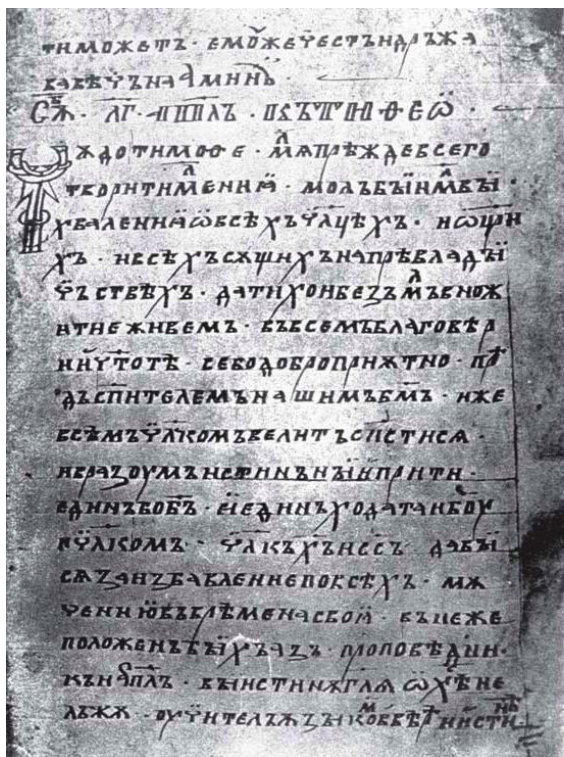 тиможетъ · емѹжечестъидръжа
вавѣчънаꙗминъ ·
Сѫⷠ · лг · ап҃плъ · пкътимоѳеѡ
Чѧдотимоѳе · мⷧ҇ѧпрѣждевсего
творитимⷧ҇ениꙗ · молъбыимⷧ҇вы ·
хвалениꙗѡвсѣхъч҃лцѣхъ · иѡц҃ри
хъ · ивсѣхъсѫщихънапрѣвлады
чъствѣхъ · датихоибезъмⷧ҇ъвиѡж
итиеживемъ · въвсемъблаговѣр
ииич҃тотѣ · себодоброприѧтно · прⷣѣ
дъсп҃ителемънашимъб҃мъ · иже
всѣмъч҃лкомъвелитъсп҃стисѧ ·
ивразоумъистинъныиприти ·
единъбоб҃ъ · иединъходатаиб҃оу
ич҃лкомъ · ч҃лкъх҃ъис҃ъ · давы
сѧзаизбавлениеповсѣхъ · мѫ
чениювъврѣменасвоꙗ · вънеже
положенъбыхъазъ · проповѣдни
кънап҃лъ · въистинѫглѧѡх҃ѣне
лъжѫ · оучителъѫзыкоⷨввѣрѣиистинѣ